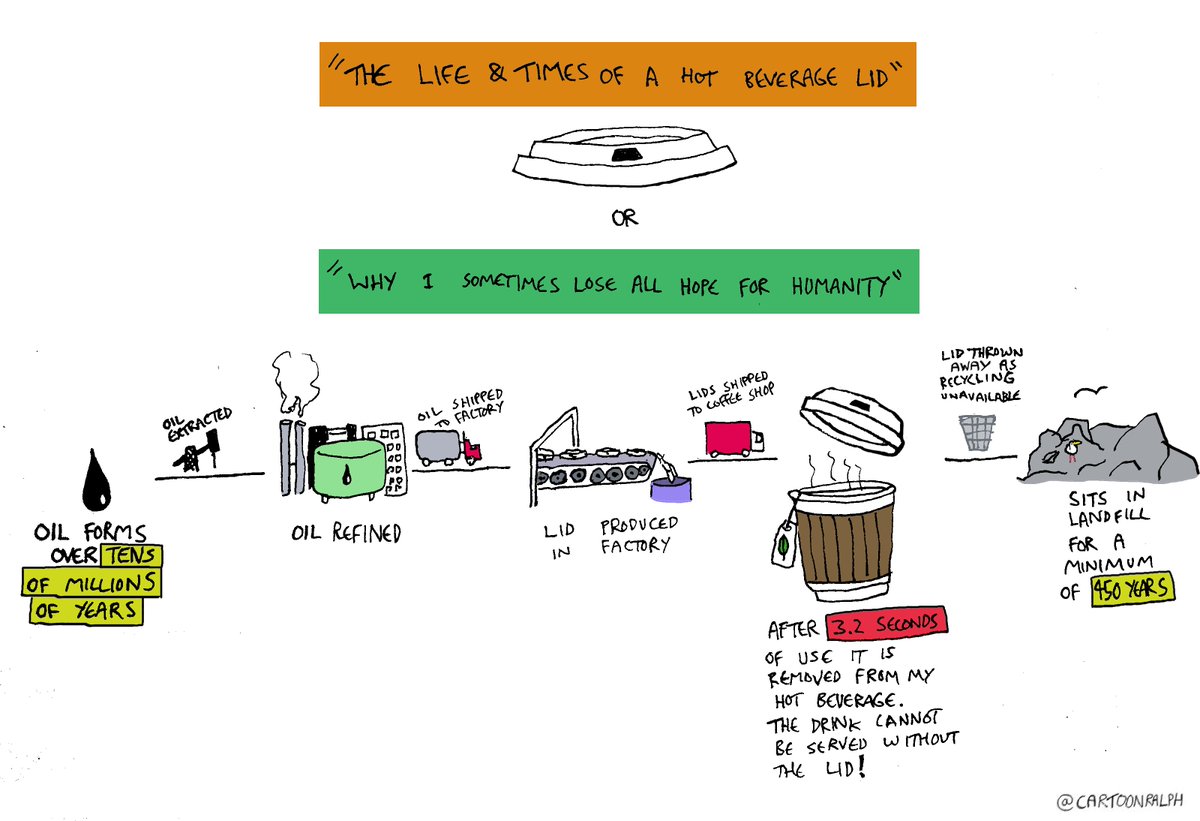 "THE LIFE & TIMES OF A HOT BEVERAGE LID"
OR
"WHY I SOMETIMES LOSE ALL HOPE FOR HUMANITY"
OIL FORMS
OVER TENS
OF MILLIONS
OF YEARS
OIL
EXTRACTED
OIL REFINED
OIL SHIPPED
TO FACTORY
LID PRODUCED
IN FACTORY
LIDS SHIPPED
TO COFFEE SHOP
AFTER 3.2 SECONDS
OF USE IT IS
REMOVED FROM MY
HOT BEVERAGE.
THE DRINK CANNOT
BE SERVED WITHOUT
THE LID!
LID THROWN
AWAY AS
RECYCLING
UNAVAILABLE
SITS IN
LANDFILL
FOR A
MINIMUM
OF 450 YEARS
@CARTOONRALPH